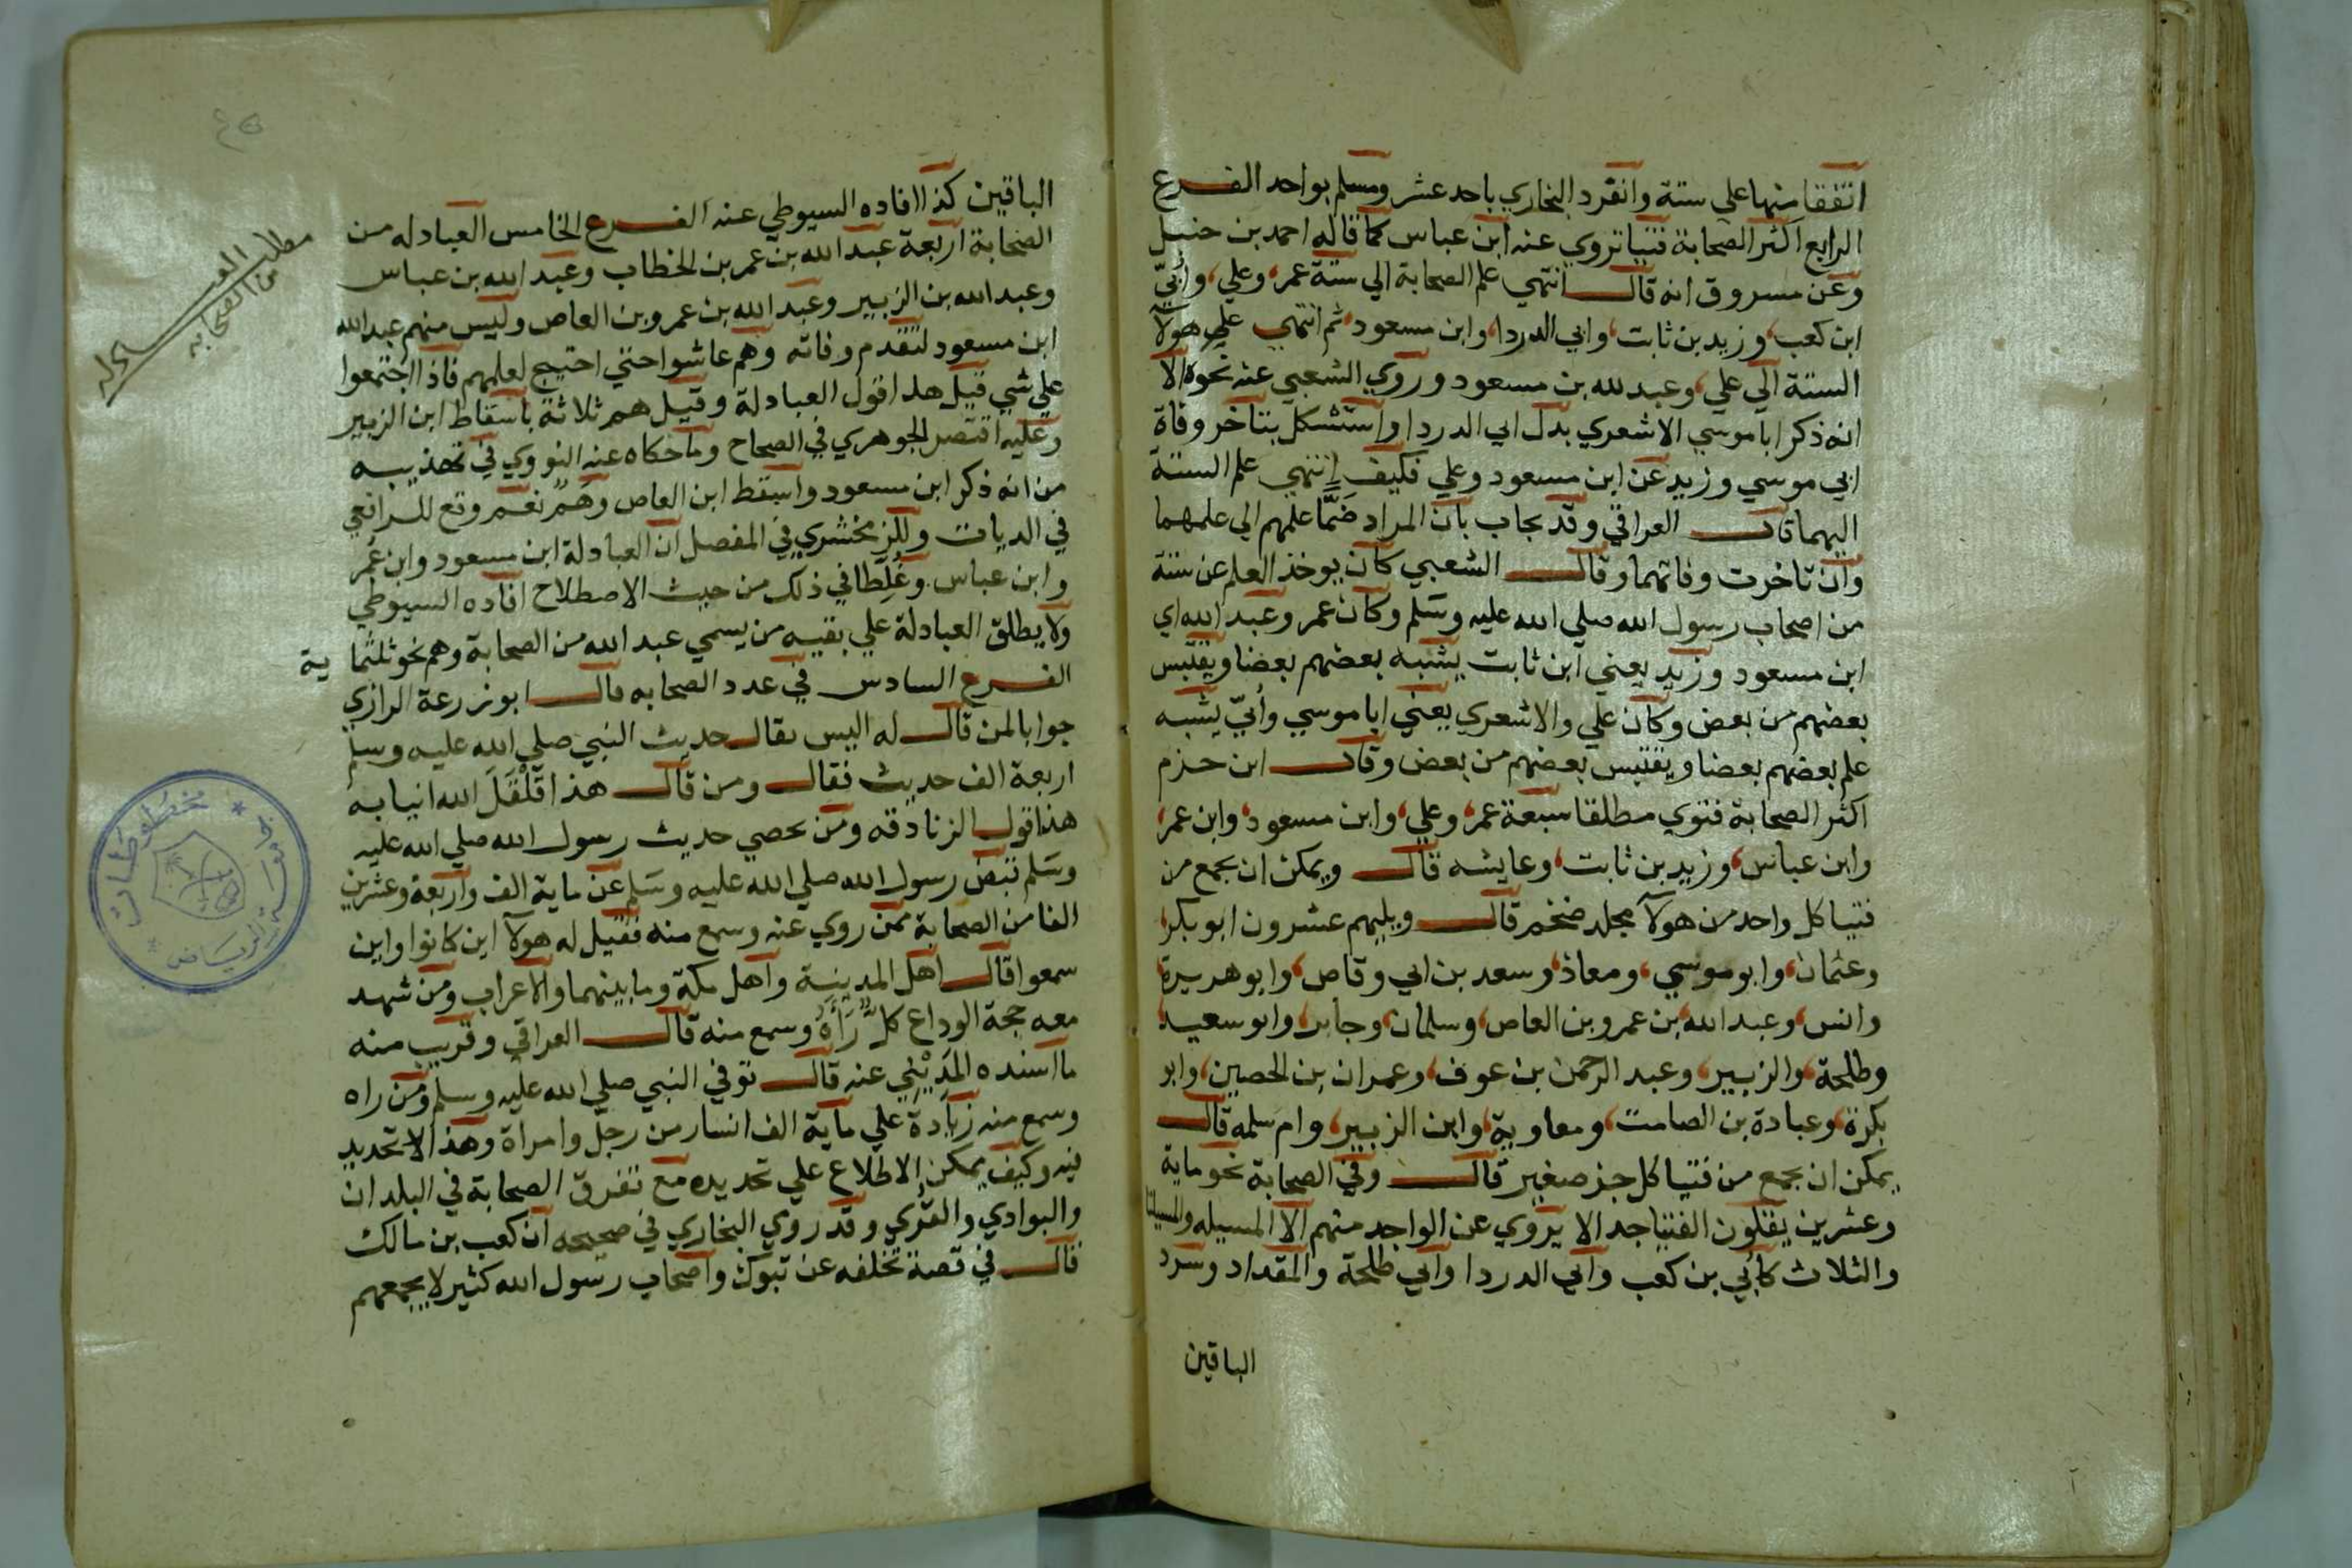 اتفقا منها على ستة وانفرد البخاري باحد عشر ومسلم بواحد الفرع
الرابع اكثر الصحابة فتيا تروي عنه ابن عباس كما قاله احمد بن حنبل
وعن مسروق انه قال انتهي علم الصحابة الي ستة عمر، وعلي، وأبيّ
ابن كعب، وزيد بن ثابت، وابي الدردا، وابن مسعود، ثم انتهي علم هولآ
الستة الي علي، وعبد لله بن مسعود وروي الشعبي عنه نحوه الا
انه ذكر ابا موسي الاشعري بدل ابي الدردا واستشكل بتاخر وفاة
ابي موسي وزيد عن ابن مسعود وعلي فكيف انتهي علم الستة
اليهما قال العراقي وقد يجاب بان المراد ضَمَّا علمهم الي علمهما
وان تاخرت وفاتهما وقال الشعبي كان يوخذ العلم عن ستة
من اصحاب رسول الله صلي الله عليه وسلم وكان عمر وعبد الله اي
ابن مسعود وزيد يعني ابن ثابت يشبه بعضهم بعضا ويقتبس
بعضهم من بعض وكان علي والاشعري يعني ابا موسي وأبيّ يشبه
علم بعضهم بعضا ويقتبس بعضهم من بعض وقال ابن حزم
اكثر الصحابة فتوي مطلقا سبعة عمر، وعلي، وابن مسعود، وابن عمر،
وابن عباس، وزيد بن ثابت، وعايشه قال ويمكن ان يجمع من
فتيا كل واحد من هولآ مجلد ضخم قال ويليهم عشرون ابو بكر،
وعثمان، وابو موسي، ومعاذ، وسعد بن ابي وقاص، وابو هريرة،
وانس، وعبد الله بن عمرو بن العاص، وسلمان، وجابر، وابو سعيد،
وطلحة، والزبير، وعبد الرحمن بن عوف، وعمران بن الحصين، وابو
بكرة، وعبادة بن الصامت، ومعاوية، وابن الزبير، وام سلمه قال
يمكن ان يجمع من فتيا كل جز صغير قال وفي الصحابة نحو ماية
وعشرين يقلون الفتيا جدا لا يروي عن الواحد منهم الا المسيله والمسيلتا
والثلاث كأبي بن كعب وابي الدردا وابي طلحة والمقداد وسرد
الباقين
الباقين كذا افاده السيوطي عنه الفرع الخامس العبادله من
الصحابة اربعة عبد الله بن عمر بن الخطاب وعبد الله بن عباس
وعبد الله بن الزبير وعبد الله بن عمرو بن العاص وليس منهم عبد الله
ابن مسعود لتقدم وفاته وهم عاشوا حتي احتيج لعلمهم فاذا اجتمعوا
علي شي قيل هذا قول العبادلة وقيل هم ثلاثة باسقاط ابن الزبير
وعليه اقتصر الجوهري في الصحاح وما حكاه عنه النووي في تهذيبه
من انه ذكر ابن مسعود واسقط ابن العاص وهم نعم وقع للرافعي
في الديات وللزمخشري في المفصل ان العبادلة ابن مسعود وابن عمر
وابن عباس وغلطا في ذلك من حيث الاصطلاح افاده السيوطي
ولا يطلق العبادلة علي بقيه من يسمي عبد الله من الصحابة وهم نحو ثلثما ية
الفرع السادس في عدد الصحابه قال ابو زرعة الرازي
جوابا لمن قال له اليس يقال حديث النبي صلي الله عليه وسلم
اربعة الف حديث فقال ومن قال هذا قَلْقَلَ الله انيابه
هذا قول الزنادقه ومن يحصي حديث رسول الله صلي الله عليه
وسلم قبض رسول الله صلي الله عليه وسلم عن ماية الف واربعة وعشرين
الفا من الصحابة ممن روي عنه وسمع منه فقيل له هولآ اين كانوا واين
سمعوا قال اهل المدينة واهل مكة وما بينهما والاعراب ومن شهد
معه حجة الوداع كلٌّ رَآهُ وسمع منه قال العراقي وقريب منه
ما اسنده المَدِيْنِي عنه قال توفي النبي صلي الله عليه وسلم ومن راه
وسمع منه زيادة علي ماية الف انسان من رجل وامراة وهذا لا تحديد
فيه وكيف يمكن الاطلاع علي تحديده مع تفرق الصحابة في البلدان
والبوادي والقري وقد روي البخاري في صحيحه ان كعب بن مالك
قال في قصة تخلفه عن تبوك واصحاب رسول الله كثير لا يجمعهم
مطلب العبادله
من الصحابه
جامعة الرياض
مخطوطات